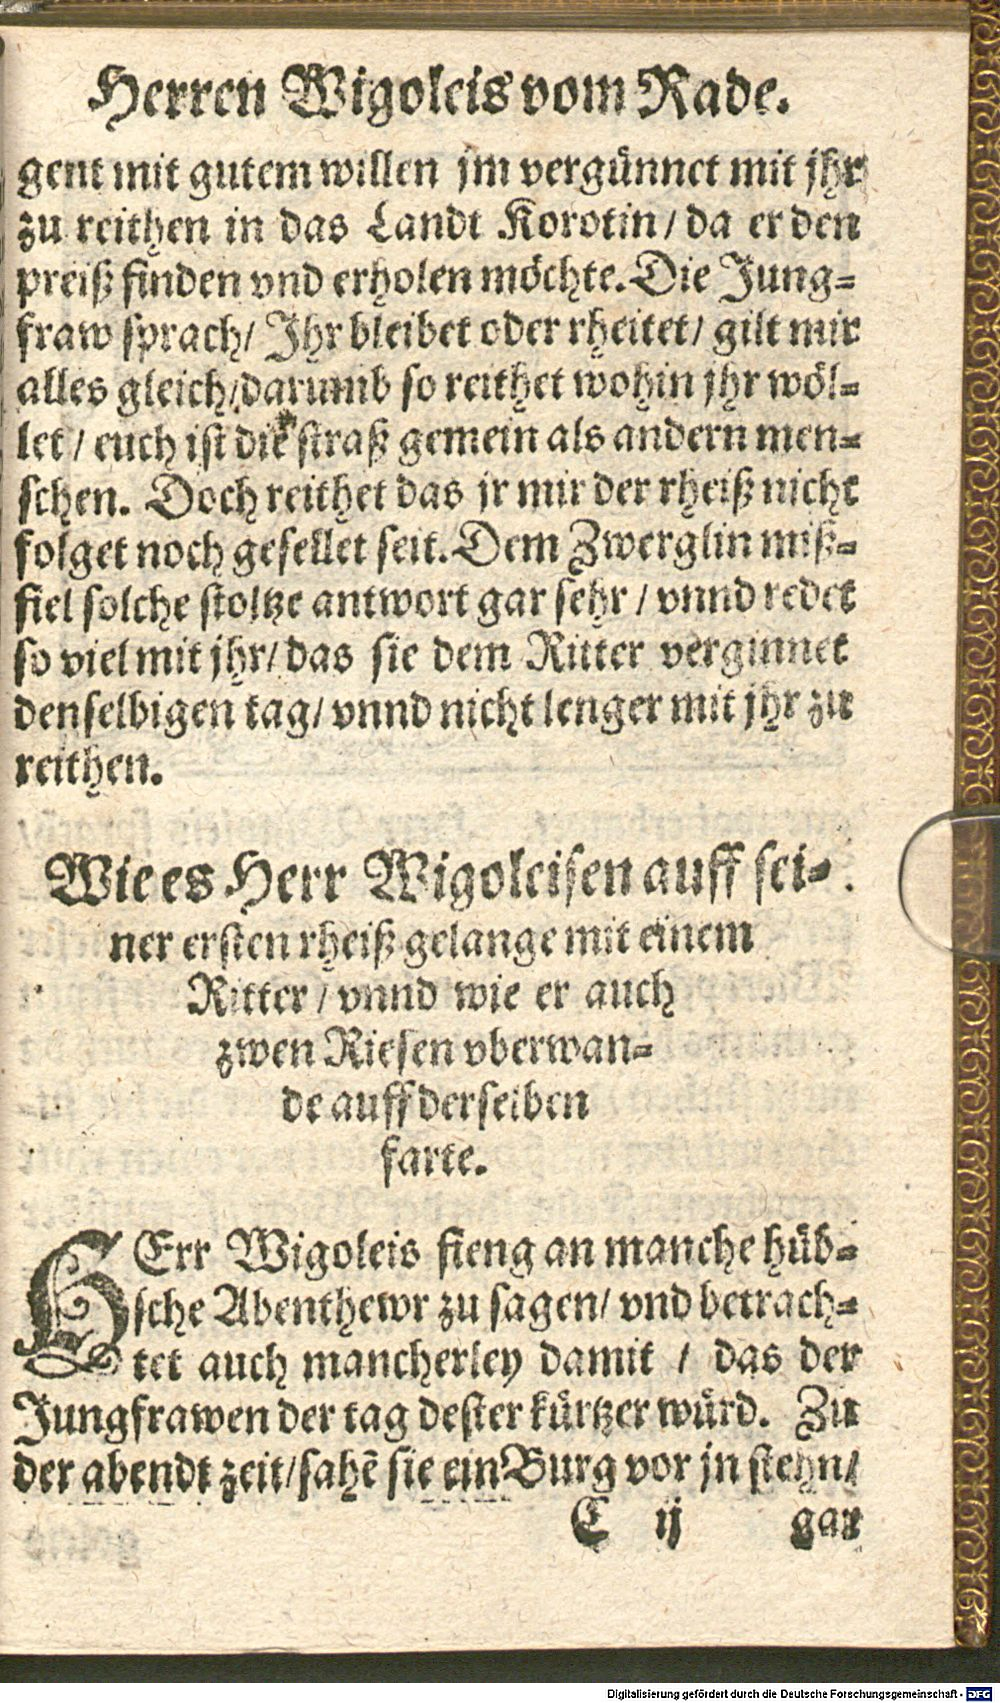 Herren Wigoleis vom Rade.
gent mit gutem willen jm vergünnet mit jhr
zu reithen in das Landt Korotin / da er den
preiß finden vnd erholen möchte. Die Jung-
fraw sprach / Jhr bleibet oder rheitet / gilt mir
alles gleich / darumb so reithet wohin jhr wöl-
let / euch ist die straß gemein als andern men-
schen. Doch reithet das jr mir der rheiß nicht
folget noch gesellet seit. Dem Zwerglin miß-
fiel solche stoltze antwort gar sehr / vnnd redet
so viel mit jhr / das sie dem Ritter verginnet
denselbigen tag / vnnd nicht lenger mit jhr zu
reithen.
Wie es Herr Wigoleisen auff sei-
ner ersten rheiß gelange mit einem
Ritter / vnnd wie er auch
zwen Riesen vberwan-
de auff derselben
farte.
HErr Wigoleis fieng an manche hüb-
sche Abenthewr zu sagen / vnd betrach-
tet auch mancherley damit / das der
Jungfrawen der tag dester kürtzer würd. Zu
der abendt zeit / sahẽ sie ein Burg vor jn stehn /
C ij gar
Digitalisierung gefördert durch die Deutsche Forschungsgemeinschaft - DFG